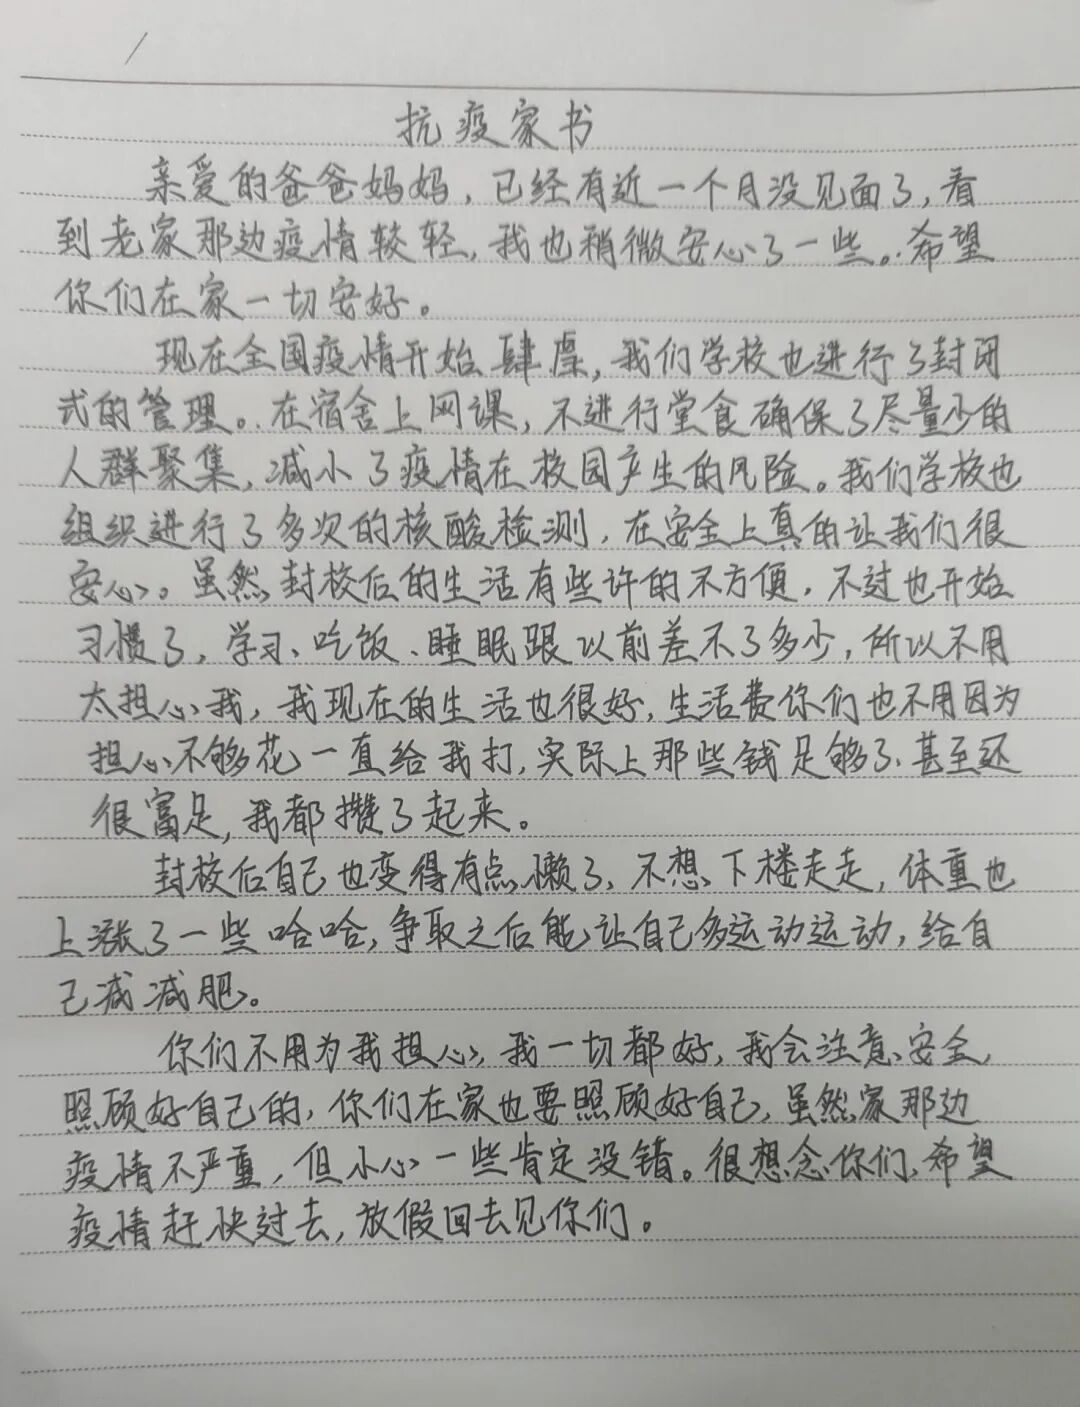 抗疫家书
亲爱的爸爸妈妈，已经有近一个月没见面了，看
到老家那边疫情较轻，我也稍微安心了一些。希望
你们在家一切安好。
现在全国疫情开始肆虐，我们学校也进行了封闭
式的管理。在宿舍上网课，不进行堂食确保了尽量少的
人群聚集，减小了疫情在校园产生的风险。我们学校也
组织进行了多次的核酸检测，在安全上真的让我们很
安心。虽然封校后的生活有些许的不方便，不过也开始
习惯了，学习、吃饭、睡眠跟以前差不了多少，所以不用
太担心我，我现在的生活也很好，生活费你们也不用因为
担心不够花一直给我打，实际上那些钱足够了、甚至还
很富足，我都攒了起来。
封校后自己也变得有点懒了，不想下楼走走，体重也
上涨了一些哈哈，争取之后能让自己多运动运动，给自
己减减肥。
你们不用为我担心，我一切都好，我会注意安全，
照顾好自己的，你们在家也要照顾好自己，虽然家那边
疫情不严重，但小心一些肯定没错。很想念你们，希望
疫情赶快过去，放假回去见你们。